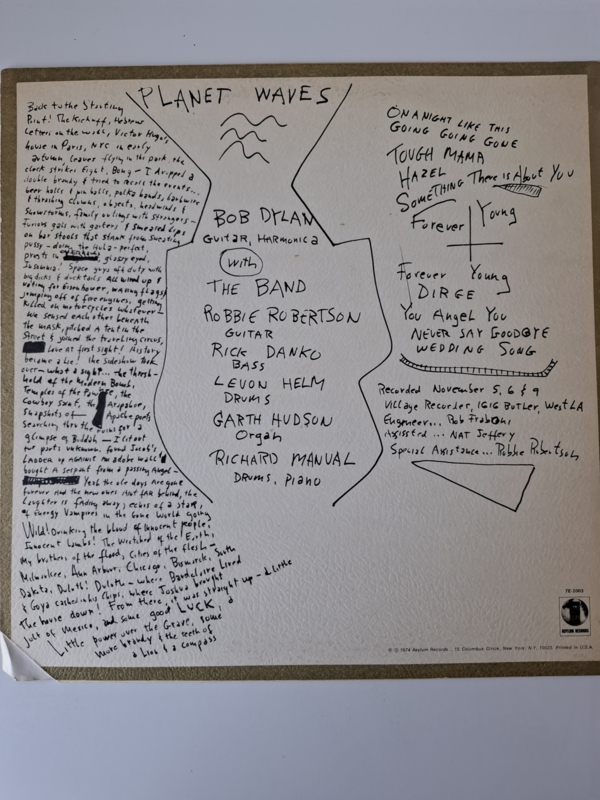 PLANET WAVES
Back to the Starting
Point! The Kickoff, Hebrew
Letters on the wall, Victor Hugo's
house in Paris, NYC in early
autumn, leaves flying in the park, the
clock strikes Eight, Bong - I dropped a
double brandy & tried to recall the events...
beer halls & pin balls, polka bands, barbwire
& thrashing clowns, objects, headwinds &
Snowstorms, family outings with strangers -
furious gals with garters & smeared lips
on bar stools that stank from sweating
pussy - doing the Hula - perfect,
priests in glassy eyed,
Insomnia! Space guys off duty with
big dicks & ducktails All wired up &
voting for Eisenhower, waving flags &
jumping off of fire engines, getting
killed on motorcycles whatever -
We sensed each other beneath
the mask, pitched a tent in the
Street & joined the traveling circus,
love at first sight! History
became a Lie! the sideshow took
over - what a sight... the thresh-
hold of the Modern Bomb,
Temples of the the
Cowboy Saint, the Arapahoe,
Snapshots of - Apache poets
Searching thru the ruins for a
glimpse of Buddah - I lit out
for parts unknown, found Jacob's
Ladder up against an adobe wall &
bought A serpent from a passing Angel -
Yeah the ole days are gone
forever And the new ones Aint far behind, the
Laughter is fading away, echos of a star,
of Energy Vampires in the Gone World going
Wild! Drinking the blood of innocent people,
Innocent Lambs! The Wretched of the Earth,
My brothers of the flood, Cities of the flesh -
Milwaukee, Ann Arbor, Chicago, Bismarck, South
Dakota, Duluth! Duluth - where Baudelaire Lived
& Goya cashed in his Chips, where Joshua brought
the house down! From there, it was straight up - a Little
jolt of Mexico, and some good LUCK, a
Little power over the Grave, some
more brandy & the teeth of
a Lion & a compass
BOB DYLAN
GUITAR, HARMONICA
With
THE BAND
ROBBIE ROBERTSON
GUITAR
RICK DANKO
BASS
LEVON HELM
DRUMS
GARTH HUDSON
Organ
RICHARD MANUAL
DRUMS, PIANO
ON A NIGHT LIKE THIS
GOING GOING GONE
TOUGH MAMA
HAZEL
SOMETHING There is About You
Forever Young
Forever Young
DIRGE
You Angel You
NEVER SAY GOODBYE
WEDDING SONG
Recorded November 5, 6 & 9
Village Recorder, 1616 BUTLER, West LA
Engeneer... Rob Fraboni
Assisted... NAT Jeffery
Special Assistance... Robbie Robertson
7E-1003
ASYLUM RECORDS
© ℗ 1974 Asylum Records, 15 Columbus Circle, New York, N.Y. 10023. Printed in U.S.A.